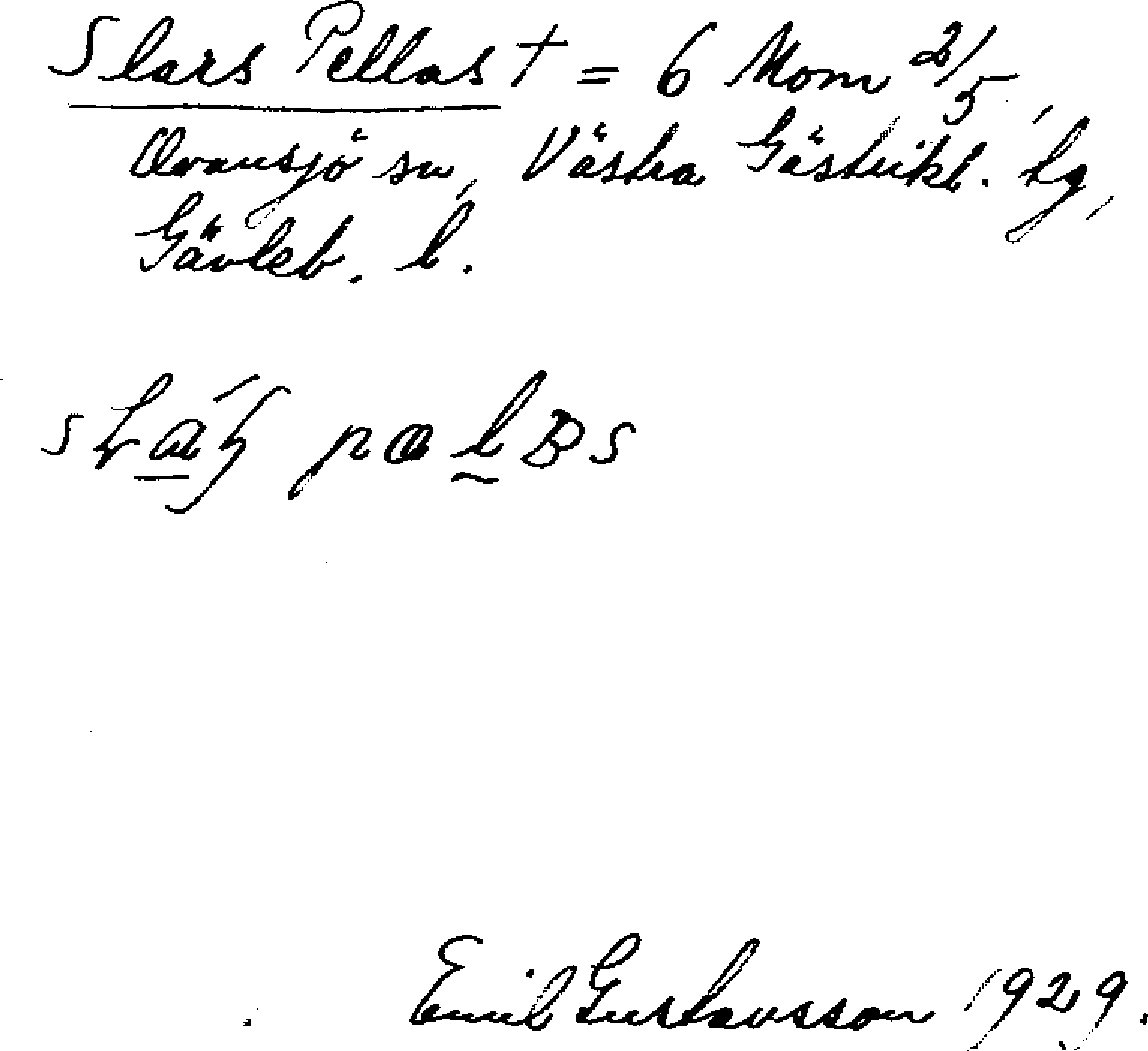 Slars Pellas + = 6 Mom 2/5,
Ovansjö sn, Västra Gästrikl. tg,
Gävleb. l.
Emil Gustavsson 1929.